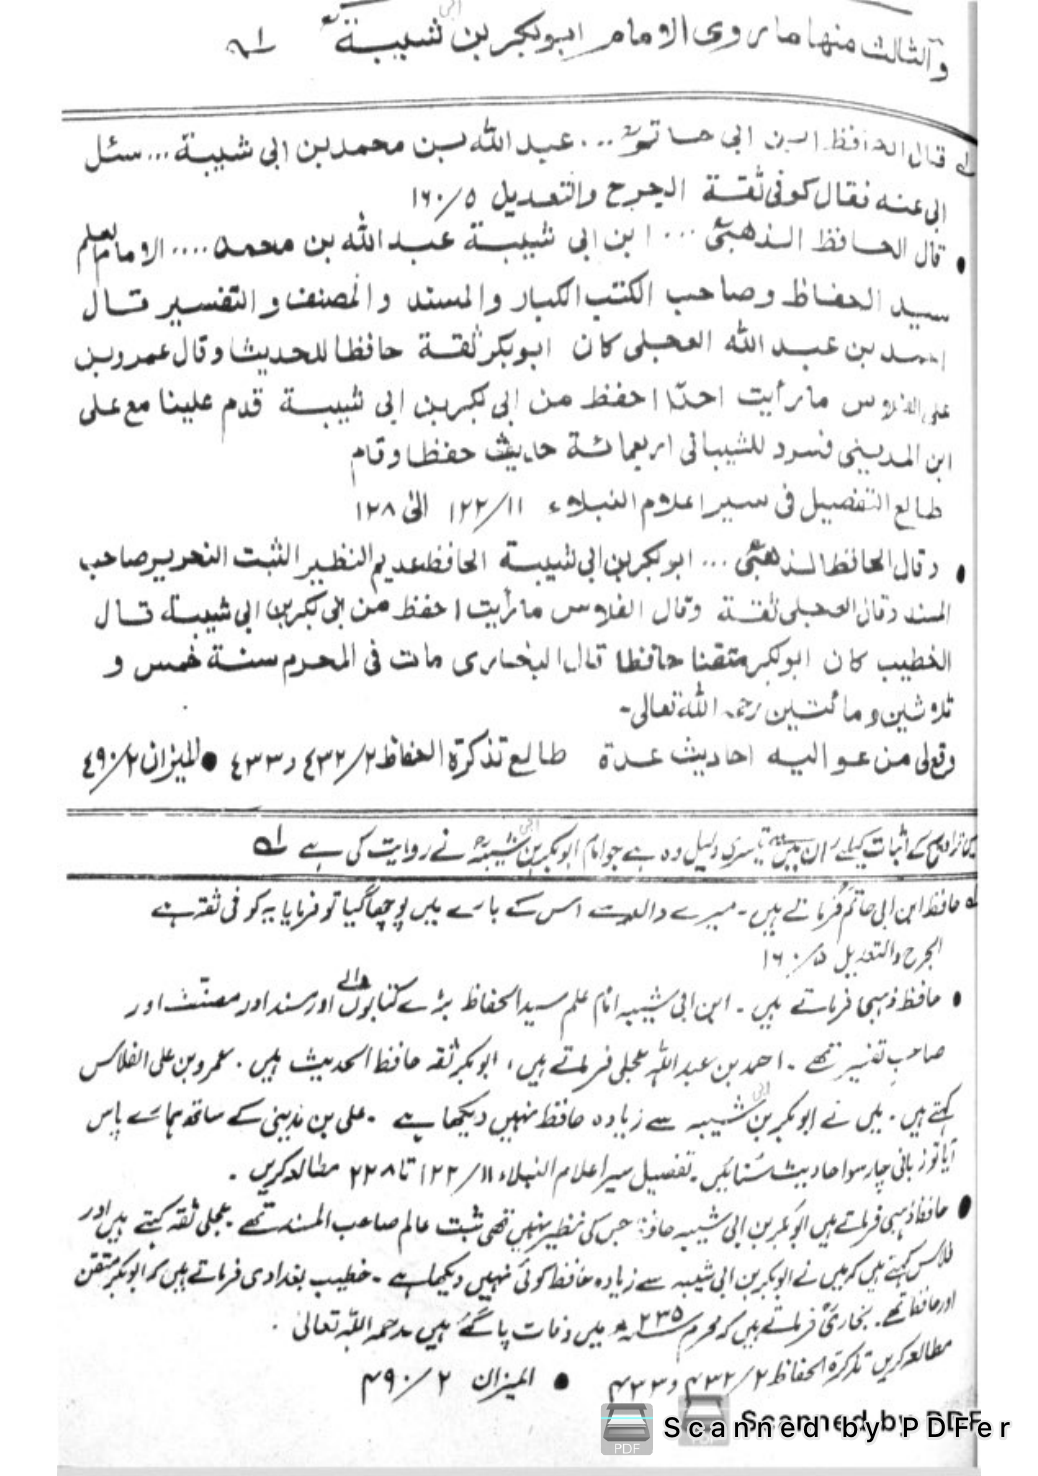 والثالث منها ما روى الامام ابوبكر بن ابى شيبة ؒ لـه
لـه قال الحافظ ابن ابى حاتم ؒ ... عبد الله بن محمد بن ابى شيبة ... سئل
ابى عنه فقال كوفى ثقة الجرح والتعديل ٥/١٦٠
• قال الحافظ الذهبىؒ ... ابن ابى شيبة عبد الله بن محمد .... الامام العلم
سيد الحفاظ وصاحب الكتب الكبار والمسند والمصنف والتفسير قال
احمد بن عبد الله العجلى كان ابوبكر ثقة حافظا للحديث وقال عمرو بن
على الفلاس ما رأيت احدًا احفظ من ابى بكر بن ابى شيبة قدم علينا مع على
ابن المدينى فسرد للشيبانى اربعمائة حديث حفظا وقام
طالع التفصيل فى سير اعلام النبلاء ١١/١٢٢ الى ١٢٨
• وقال الحافظ الذهبىؒ ... ابوبكر بن ابى شيبة الحافظ عديم النظير الثبت النحرير صاحب
المسند وقال العجلى ثقة وقال الفلاس ما رأيت احفظ من ابى بكر بن ابى شيبة قال
الخطيب كان ابوبكر متقنا حافظا قال البخارى مات فى المحرم سنة خمس و
ثلاثين ومائتين رحمه الله تعالى-
وقع لى من عواليه احاديث عدة طالع تذكرة الحفاظ ٢/٤٣٢ و ٤٣٣ • الميزان ٢/٤٩٠
تراویح کے اثبات کیلئے ان میں سے تیسری دلیل وہ ہے جو امام ابوبکر بن ابی شیبہؒ نے روایت کی ہے لـه
لـه حافظ ابن ابی حاتمؒ فرماتے ہیں۔ میرے والد سے اس کے بارے میں پوچھا گیا تو فرمایا یہ کوفی ثقہ ہے
الجرح والتعدیل ۵/۱۶۰
• حافظ ذہبی فرماتے ہیں۔ ابن ابی شیبہ امام علم سید الحفاظ بڑے کتابوں والے اور مسند اور مصنف اور
صاحب تفسیر تھے۔ احمد بن عبد اللہ عجلی فرماتے ہیں، ابوبکر ثقہ حافظ الحدیث ہیں۔ عمرو بن علی الفلاس
کہتے ہیں۔ میں نے ابوبکر بن ابی شیبہ سے زیادہ حافظ نہیں دیکھا ہے۔ علی بن مدینی کے ساتھ ہمارے پاس
آیا تو زبانی چار سو احادیث سنائیں۔ تفصیل سیر اعلام النبلاء ۱۱/۱۲۲ تا ۲۲۸ مطالعہ کریں۔
• حافظ ذہبی فرماتے ہیں ابوبکر بن ابی شیبہ حافظ جس کی نظیر نہیں تھی ثبت عالم صاحب المسند تھے۔ عجلی ثقہ کہتے ہیں اور
فلاس کہتے ہیں کہ میں نے ابوبکر بن ابی شیبہ سے زیادہ حافظ کوئی نہیں دیکھا ہے۔ خطیب بغدادی فرماتے ہیں کہ ابوبکر متقن
اور حافظ تھے۔ بخاریؒ فرماتے ہیں کہ محرم ۲۳۵ھ میں وفات پا گئے ہیں رحمہ اللہ تعالی۔
مطالعہ کریں تذکرۃ الحفاظ ۲/۴۳۲ و ۴۳۳ • المیزان ۲/۴۹۰
Scanned by PDFer